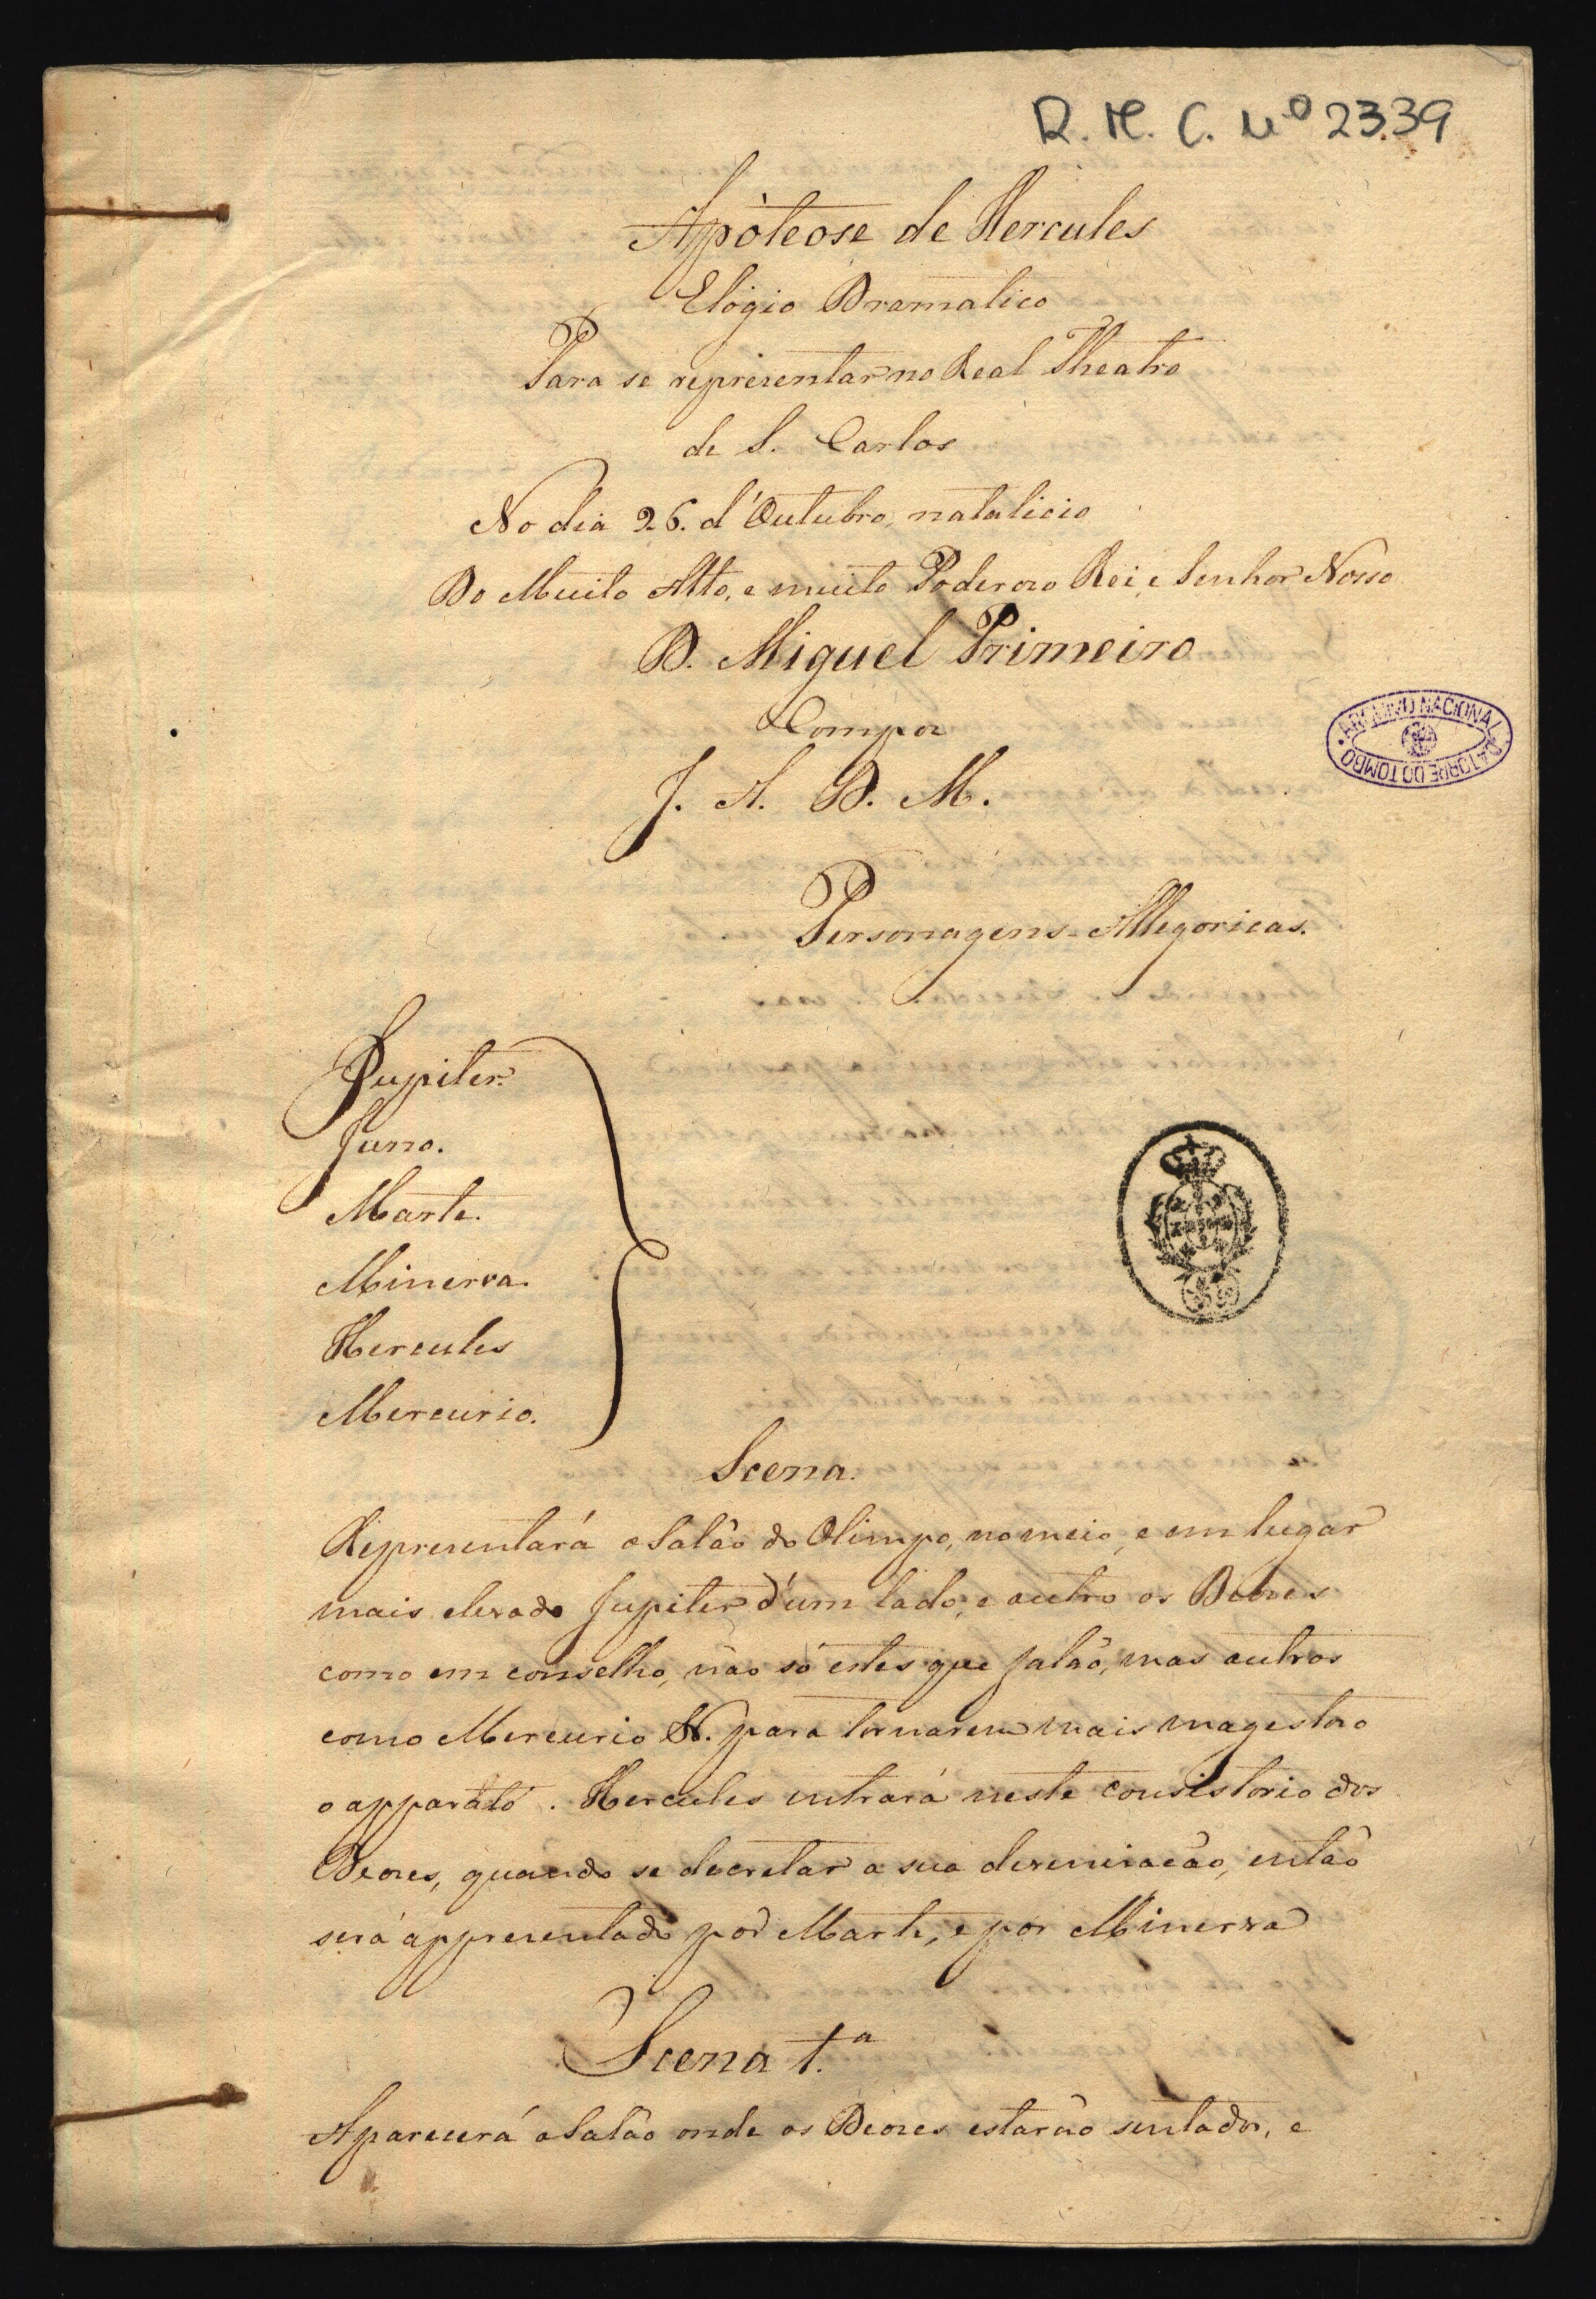 R. M. C. Nº 2339
Apòteose de Hercules
Elógio Dramatico
Para se representar no Real Theatro
de S. Carlos
No dia 26. d'Outubro, natalicio
Do Muito Alto, e muito Poderozo Rei, e Senhor Nosso
D. Miguel Primeiro
Compoz
J. A. D. M.
ARQUIVO NACIONAL DA TORRE DO TOMBO
Personagens Allegoricas.
Jupiter.
Juno.
Marte.
Minerva.
Hercules
Mercurio.
Scena.
Representará o Salão do Olimpo, no meio, e em lugar
mais elevado Jupiter d'um lado, e outro os Deozes
como em conselho, não só estes que falão, mas outros
como Mercurio &. para tornarem mais magestozo
o apparato. Hercules entrará neste consistorio dos
Deozes, quando se decretar a sua, então
será appresentado por Marte, e por Minerva
Scena 1.ª
Aparecerá o Salão onde os Deozes estarão sentados, e